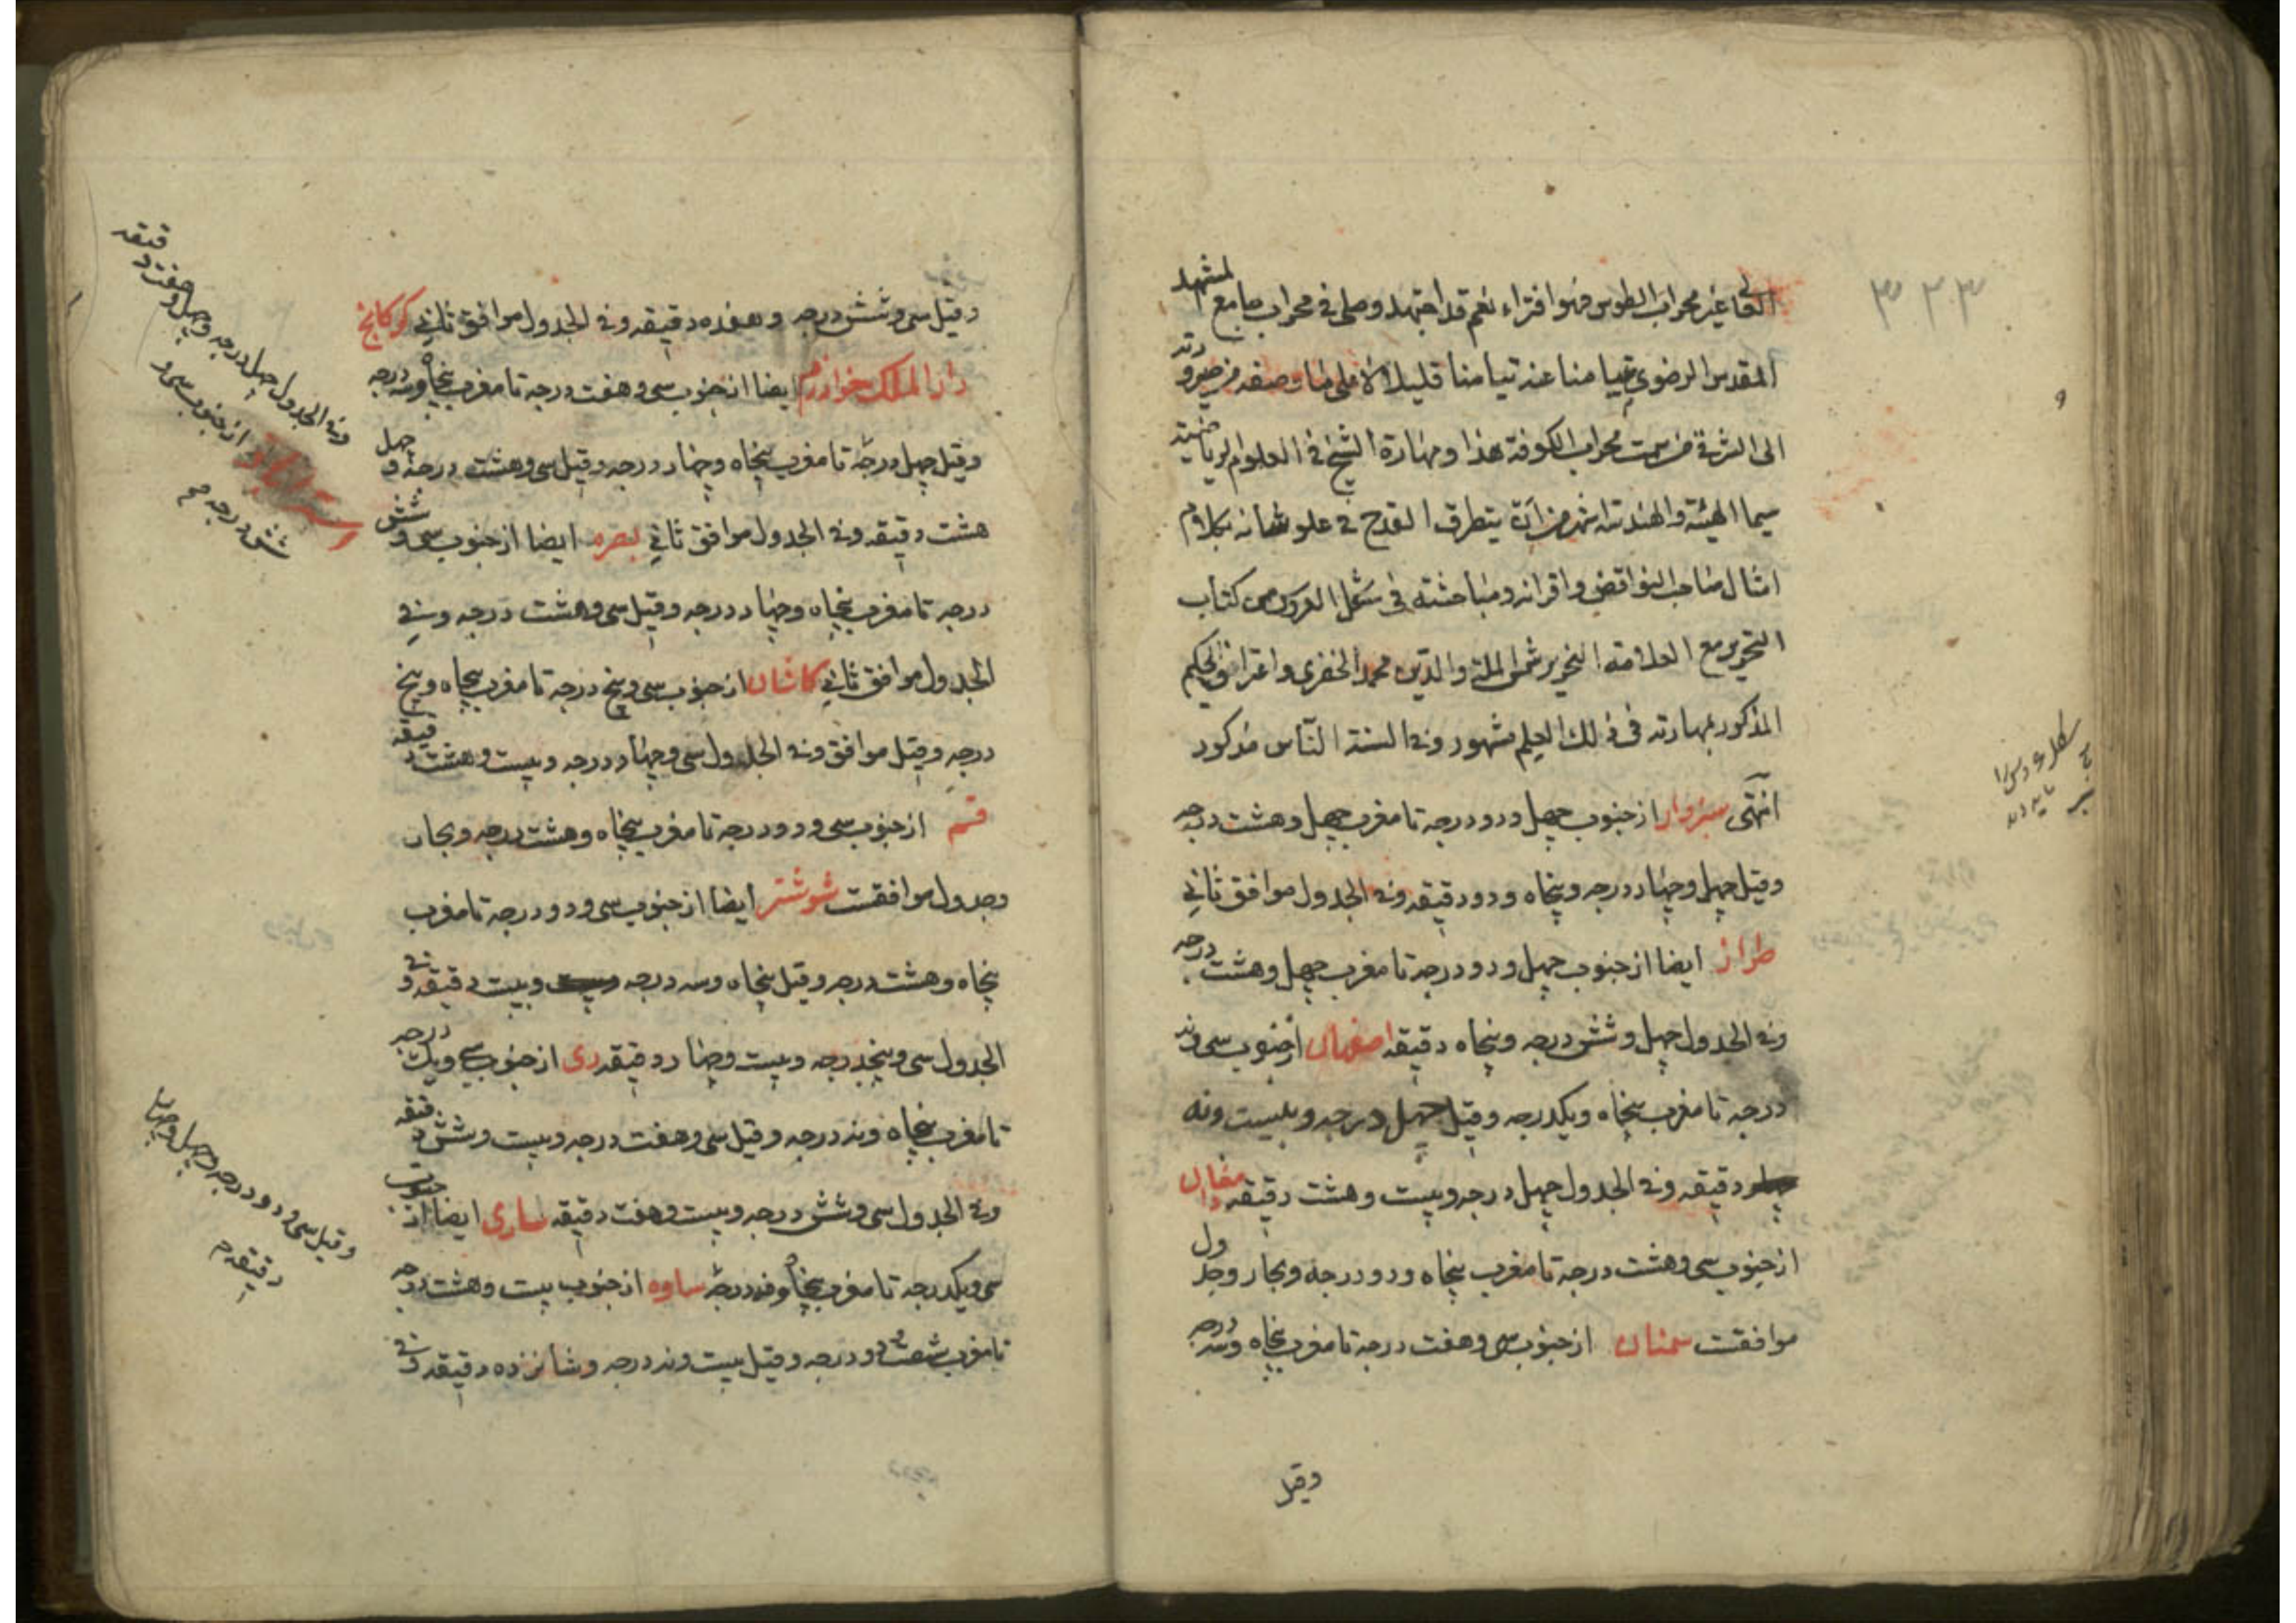 ۳۲۳
غير محراب الطوس فهوا فتراء نعم قد اجتهد وصلى فى محراب جامع المشهد
المقدس الرضوى تيامنا عنه تيامنا قليلا
الى الشرق من سمت محراب الكوفة هذا ومهارة الشيخ فى العلوم الرياضية
سيما الهيئة والهندسة اشهر من ان يتطرق القدح فى علو شانه بكلام
امثال صاحب النواقض واقرانه ومباحثته فى شكل العروس من كتاب
التحرير مع العلامة النحرير شمس الملة والدين محمد الخفرى واعتراف الحكيم
المذكور بمهارته فى ذلك العلم مشهور وفى السنة الناس مذكور
انتهى سبزوار از جنوب چهل ودو درجه تا مغرب چهل وهشت درجه
وقيل چهل وچهار درجه وپنجاه ودو دقيقه وفى الجدول موافق ثانى
طراز ايضا از جنوب چهل ودو درجه تا مغرب چهل وهشت درجه
وفى الجدول چهل وشش درجه وپنجاه دقيقه اصفهان از جنوب سى ونه
درجه تا مغرب پنجاه ويكدرجه وقيل چهل درجه وبيست ونه
دقيقه وفى الجدول چهل درجه وبيست وهشت دقيقه
از جنوب سى وهشت درجه تا مغرب پنجاه ودو درجه وبحار وجدول
موافقت سمنان از جنوب سى وهفت درجه تا مغرب پنجاه وسه درجه
وقيل
وقيل سى وشش درجه وهفده دقيقه وفى الجدول موافق ثانى كركانج
دار الملك خوارزم ايضا از جنوب سى وهفت درجه تا مغرب پنجاه وسه درجه
وقيل چهل درجه تا مغرب پنجاه وچهار درجه وقيل سى وهشت درجه وچهل
هشت دقيقه وفى الجدول موافق ثانى بصره ايضا از جنوب سى وشش
درجه تا مغرب پنجاه وچهار درجه وقيل سى وهشت درجه وفى
الجدول موافق ثانى كاشان از جنوب سى وپنج درجه تا مغرب پنجاه وپنج
درجه وقيل موافق وفى الجدول سى وچهار درجه وبيست وهشت دقيقه
قم از جنوب سى ودو درجه تا مغرب پنجاه وهشت درجه وبحار
وجدول موافقت شوشتر ايضا از جنوب سى ودو درجه تا مغرب
پنجاه وهشت درجه وقيل پنجاه وسه درجه وبيست دقيقه وفى
الجدول سى وپنجدرجه وبيست وچهار دقيقه رى از جنوب سى ويك درجه
تا مغرب پنجاه ونه درجه وقيل سى وهفت درجه وبيست وشش دقيقه
وفى الجدول سى وشش درجه وبيست وهفت دقيقه سارى ايضا از جنوب
سى ويكدرجه تا مغرب پنجاه ونه درجه ساوه از جنوب بيست وهشت درجه
تا مغرب شصت ودو درجه وقيل بيست ونه درجه وشانزده دقيقه وفى
وفى الجدول چهل درجه وچهل وهفت دقيقه
استراباد از جنوب سى و
شش درجه
وقيل سى ودو درجه وچهل وچهار
دقيقه